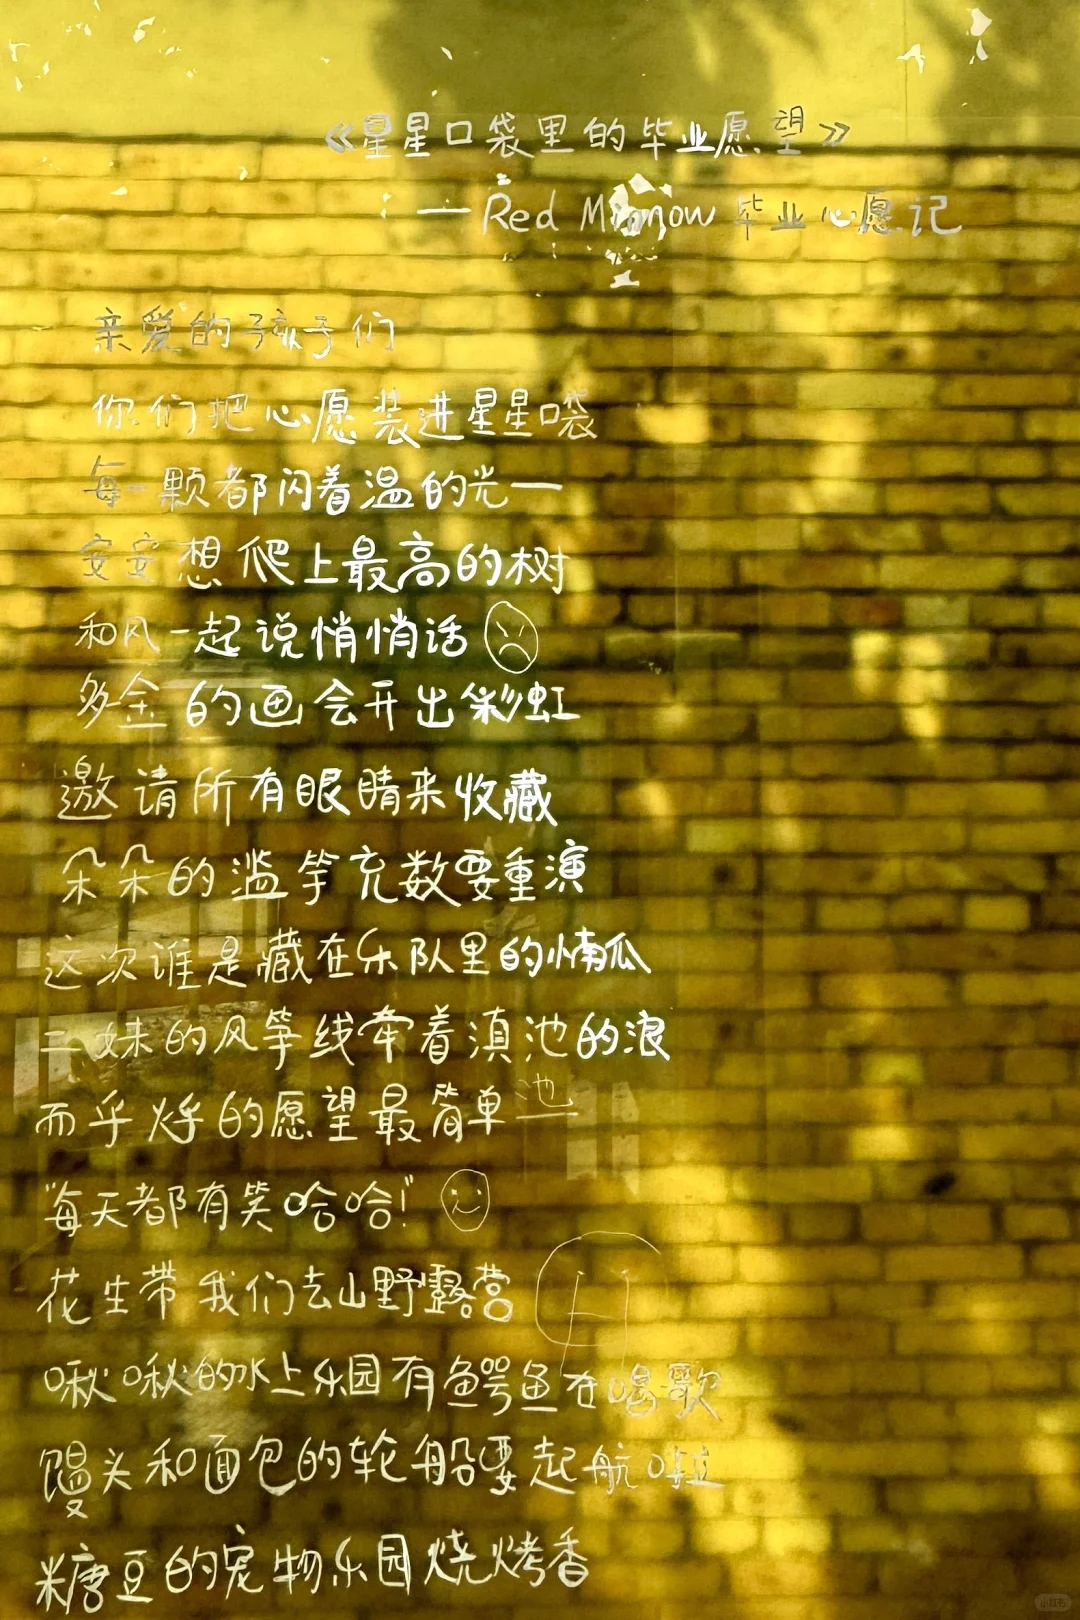 《星星口袋里的毕业愿望》
——Red Minnow 毕业心愿记
亲爱的孩子们
你们把心愿装进星星口袋
每一颗都闪着温的光一
安安想爬上最高的树
和风一起说悄悄话
多金的画会开出彩虹
邀请所有眼睛来收藏
朵朵的滥竽充数要重演
这次谁是藏在乐队里的南瓜
二妹的风筝线牵着滇池的浪
而乎乎的愿望最简单
池
"每天都有笑哈哈!"
花生带我们去山野露营
啾啾的水上乐园有鳄鱼在唱歌
馒头和面包的轮船要起航啦
糖豆的宠物乐园烧烤香
小红书